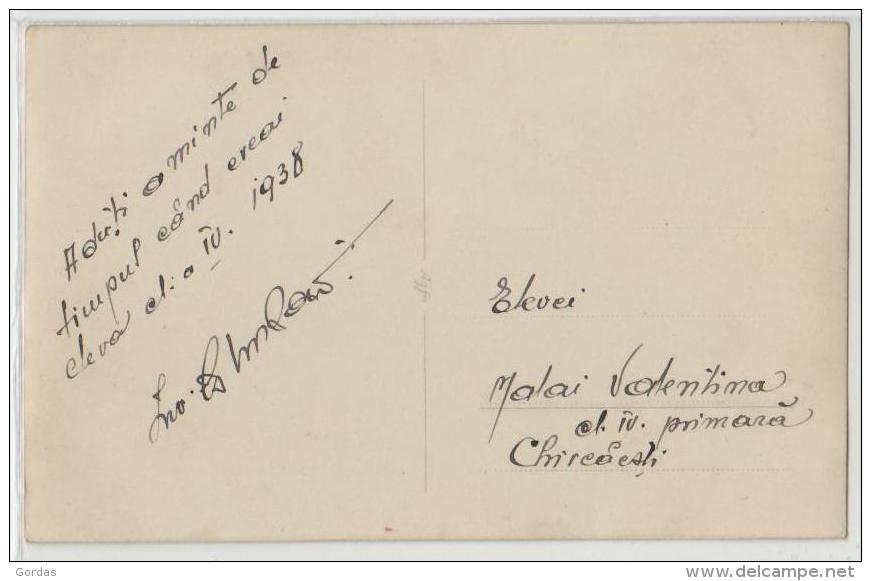 Aduți aminte de
timpul când ereai
elevă cl. a IV. 1938
Înv.
Elevei
Malai Valentina
cl. IV. primară
Chircăești
Gordas
www.delcampe.net